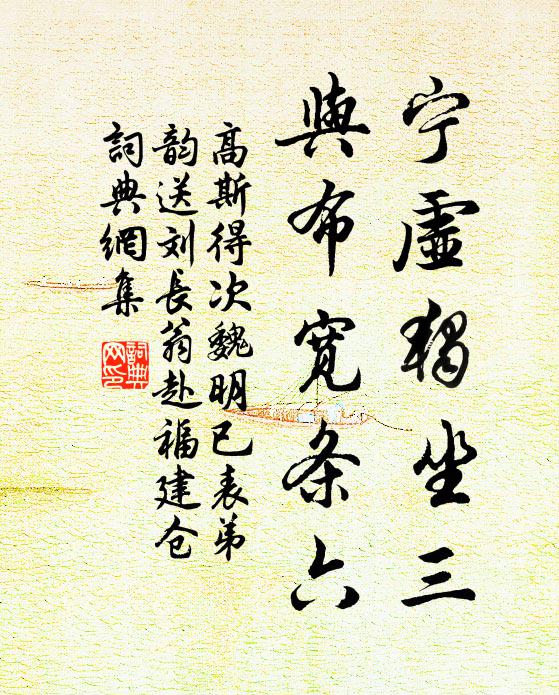 宁虚独坐三
與布宽条六
高斯得次魏明已表弟
韵送刘長翁赴福建仓
詞典網集
詞典
网印